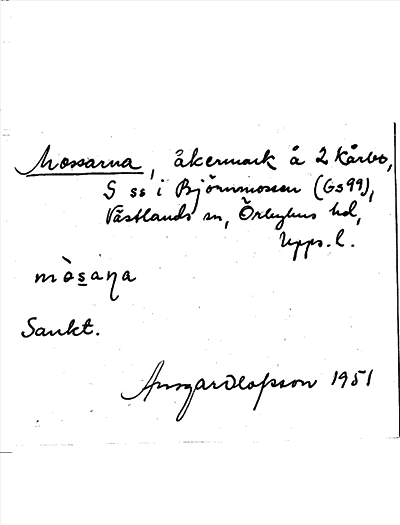 Mossarna, åkermark å 2 Kårbo,
S ss i Björnmossen (Gs 99),
Västlands sn, Örbyhus hd,
Upps. l.
mòsaṇa
Sankt.
Ansgar Olofsson 1951